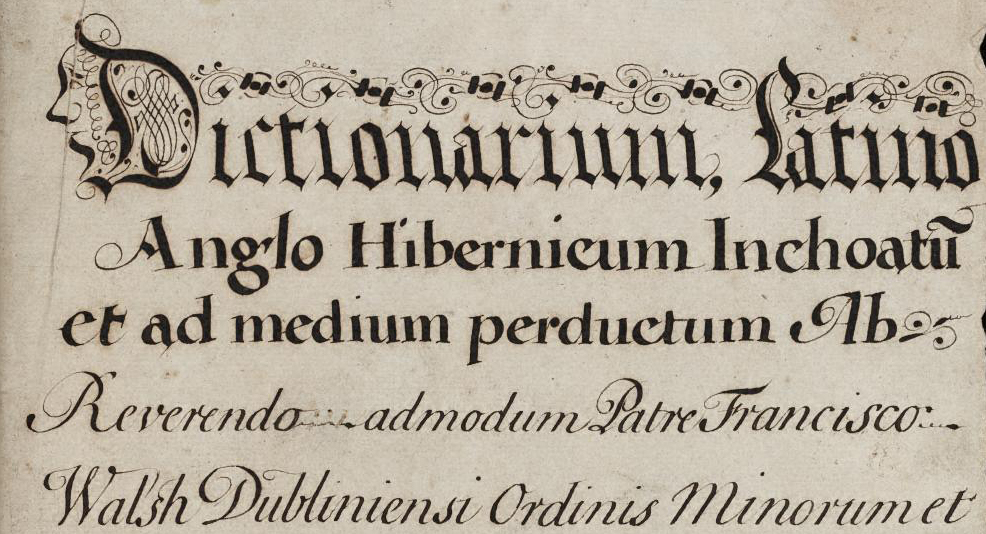 Dictionarium, Latino
Anglo Hibernicum Inchoatū
et ad medium perductum Ab
Reverendo admodum Patre Francisco:
Walsh Dubliniensi Ordinis Minorum et